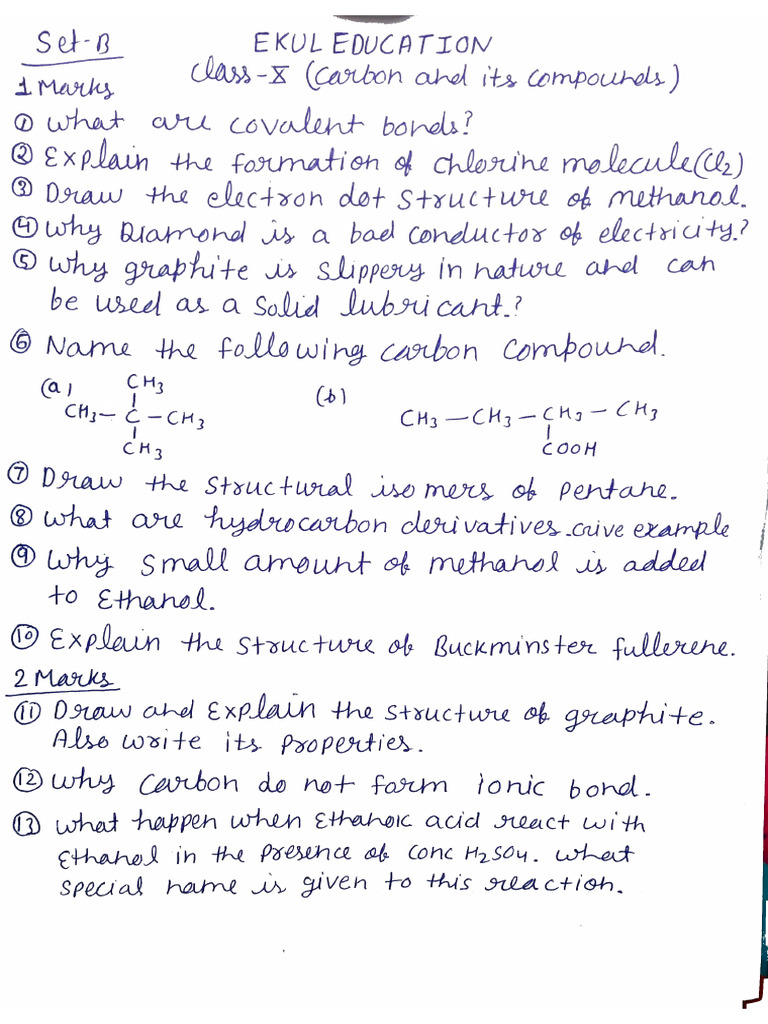 Set-B EKUL EDUCATION
Class-X (Carbon and its compounds)
1 Marks
① What are covalent bonds?
② Explain the formation of chlorine molecule (Cl₂)
③ Draw the electron dot structure of methanol.
④ Why Diamond is a bad conductor of electricity.?
⑤ Why graphite is slippery in nature and can
be used as a solid lubricant.?
⑥ Name the following carbon compound.
(a) CH₃ (b)
CH₃ – C – CH₃ CH₃ – CH₃ – CH₃ – CH₃
CH₃ COOH
⑦ Draw the structural isomers of pentane.
⑧ What are hydrocarbon derivatives. Give example
⑨ Why small amount of methanol is added
to Ethanol.
⑩ Explain the structure of Buckminster fullerene.
2 Marks
⑪ Draw and Explain the structure of graphite.
Also write its properties.
⑫ Why carbon do not form ionic bond.
⑬ What happen when Ethanoic acid react with
Ethanol in the presence of conc H₂SO₄. What
special name is given to this reaction.